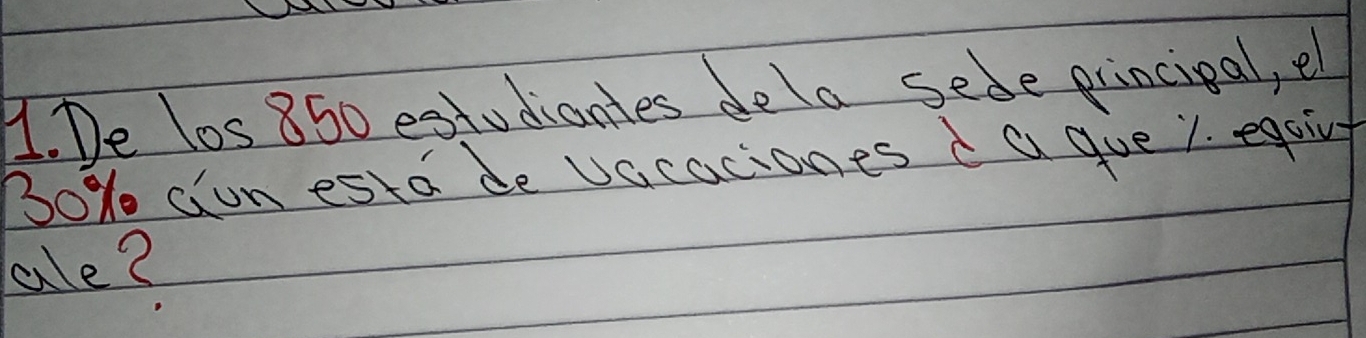 1. De los 850 estudiantes dela sede principal, el
30% aún está de vacaciones ¿ a que % equiv
ale?